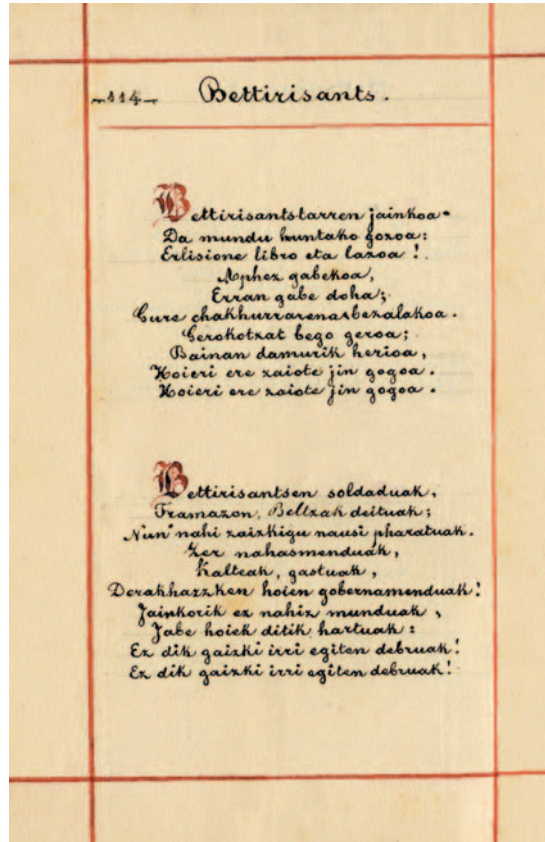 -114- Bettirisants.
Bettirisantstarren jainkoa
Da mundu huntako gozoa:
Erlisione libro eta lazoa!
Aphez gabekoa,
Erran gabe doha;
Gure chakhurrarena bezalakoa.
Gerokotzat bego geroa;
Bainan damurik herioa,
Hoieri ere zaiote jin gogoa.
Hoieri ere zaiote jin gogoa.
Bettirisantsen soldaduak,
Framazon, Beltzak deituak;
Nun nahi zaizkigu nausi pharatuak.
Zer nahasmenduak,
Kalteak, gastuak,
Derakhazzken hoien gobernamenduak!
Jainkorik ez nahiz munduak,
Jabe hoiek ditik hartuak:
Ez dik gaizki irri egiten debruak!
Ez dik gaizki irri egiten debruak!